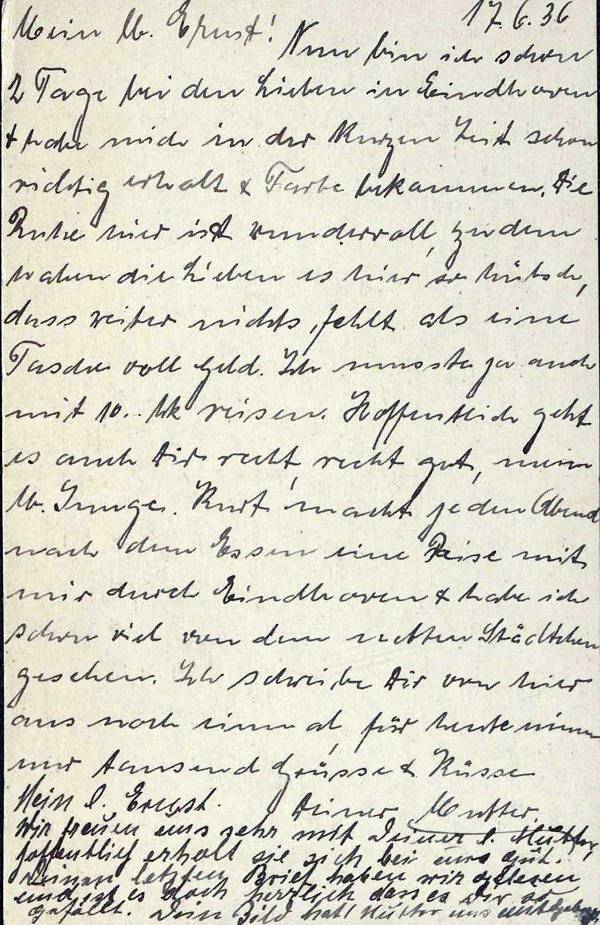 17.6.36
Mein lb. Ernst!
Nun bin ich schon
2 Tage bei den Lieben in Eindhoven
& habe mich in der kurzen Zeit schon
richtig erholt & Farbe bekommen. Die
Ruhe hier ist wundervoll, zudem
haben die Lieben es hier so hübsch,
dass weiter nichts fehlt als eine
Tasche voll Geld. Ich musste ja auch
mit 10.- Mk reisen. Hoffentlich geht
es auch Dir recht, recht gut, mein
lb. Junge. Kurt macht jeden Abend
nach dem Essen eine Reise mit
mir durch Eindhoven & habe ich
schon viel von dem netten Städtchen
gesehen. Ich schreibe Dir von hier
aus noch einmal, für heute nimm
nur tausend Grüsse & Küsse
Deiner Mutter.
Mein l. Ernst.
Wir freuen uns sehr mit Deiner l. Mutter,
hoffentlich erholt sie sich bei uns gut.
Deinen letzten Brief haben wir gelesen
und ist es doch herrlich dass es Dir so
gefällt. Dein Bild hat Mutter uns